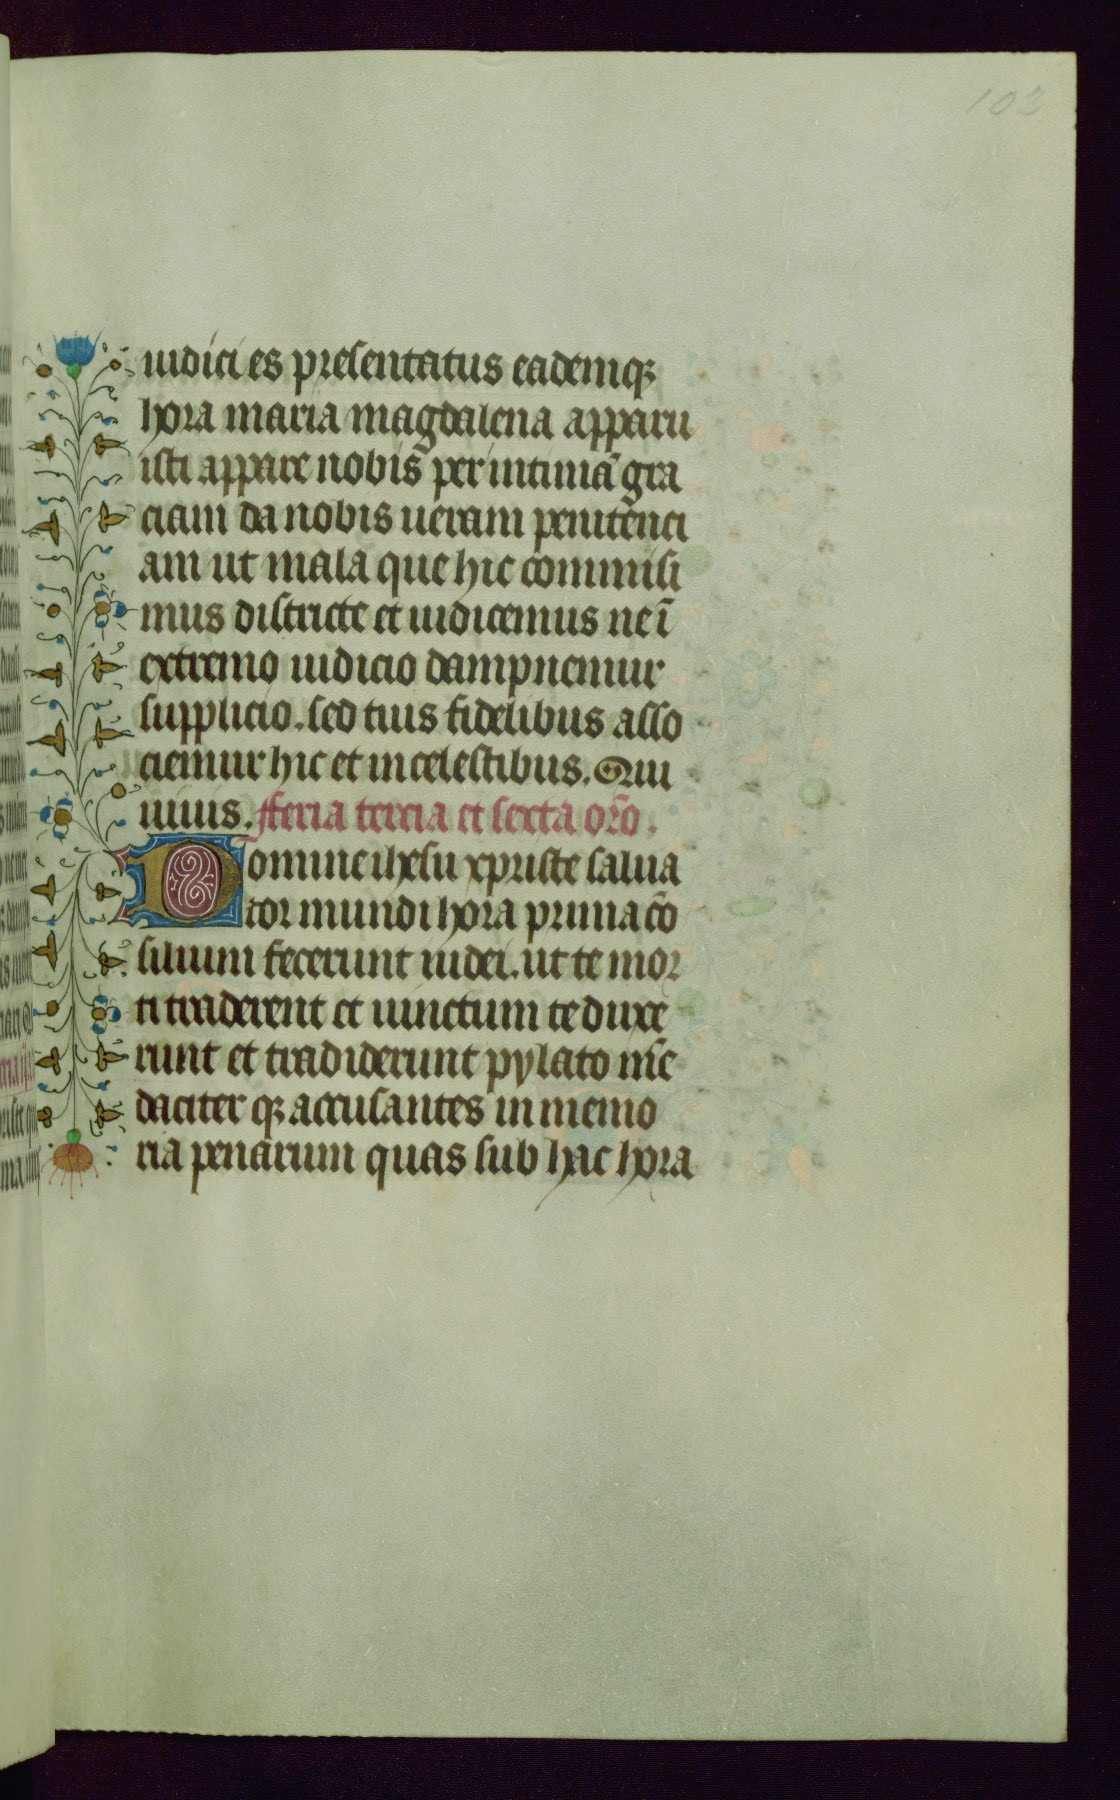 103
iudici es presentatus eademqꝫ
hora maria magdalena apparu
isti appare nobis per intimā gra
ciam da nobis ueram penitenci
am ut mala que hic commisi
mus districte et iudicemus ne ī
extremo iudicio dampnemur
supplicio. sed tuis fidelibus asso
ciemur hic et in celestibus. Qui
uiuis. fferia tercia et sexta oro᷑.
Domine ihesu xpriste salua
tor mundi hora prima cō
silium fecerunt iudei. ut te mor
ti traderent et uinctum te duxe
runt et tradiderunt pylato mē
daciter qꝫ accusantes in memo
ria penarum quas sub hac hora